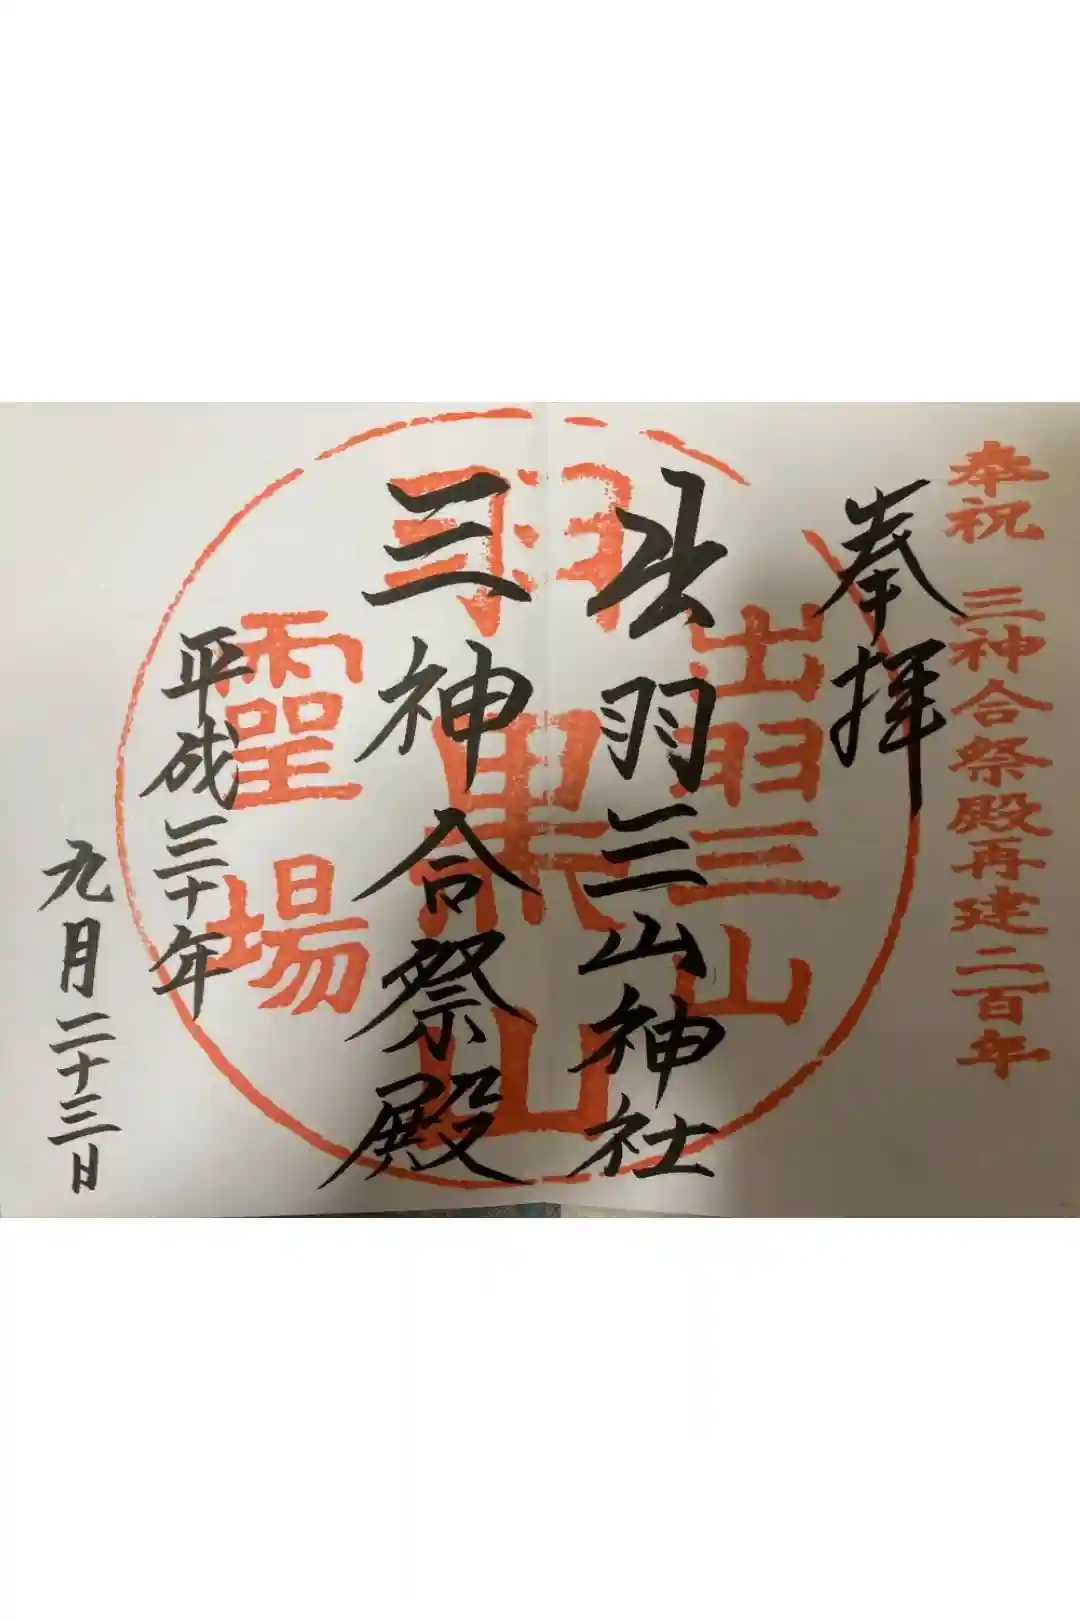 奉祝 三神合祭殿再建二百年
奉拝
出羽三山神社
三神合祭殿
平成三十年
九月二十三日
出羽三山
羽黒山
霊場